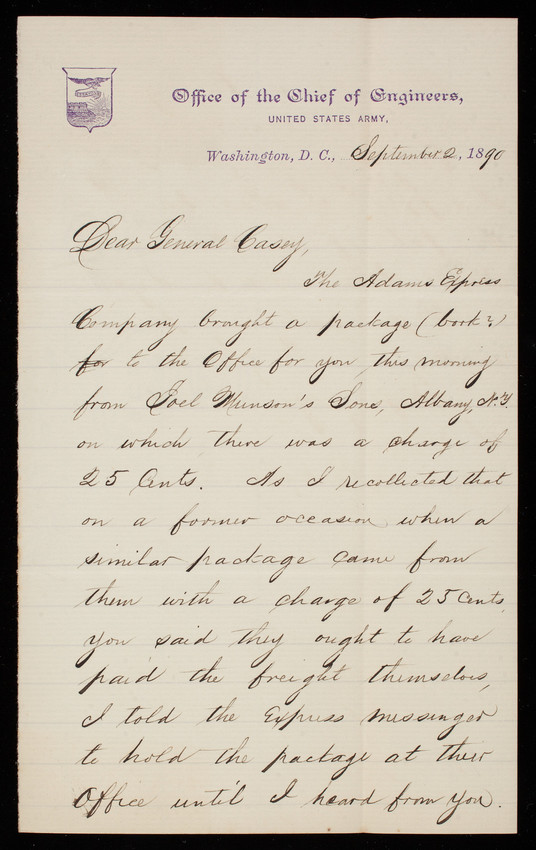 Office of the Chief of Engineers,
UNITED STATES ARMY,
Washington, D. C., September 2, 1890
Dear General Casey,
The Adams Express
Company brought a package (book?)
for to the Office for you this morning
from Joel Munson's Sons, Albany, N.Y.
on which there was a charge of
25 Cents. As I recollected that
on a former occasion when a
similar package came from
them with a charge of 25 Cents,
you said they ought to have
paid the freight themselves,
I told the Express Messenger
to hold the package at their
Office until I heard from you.